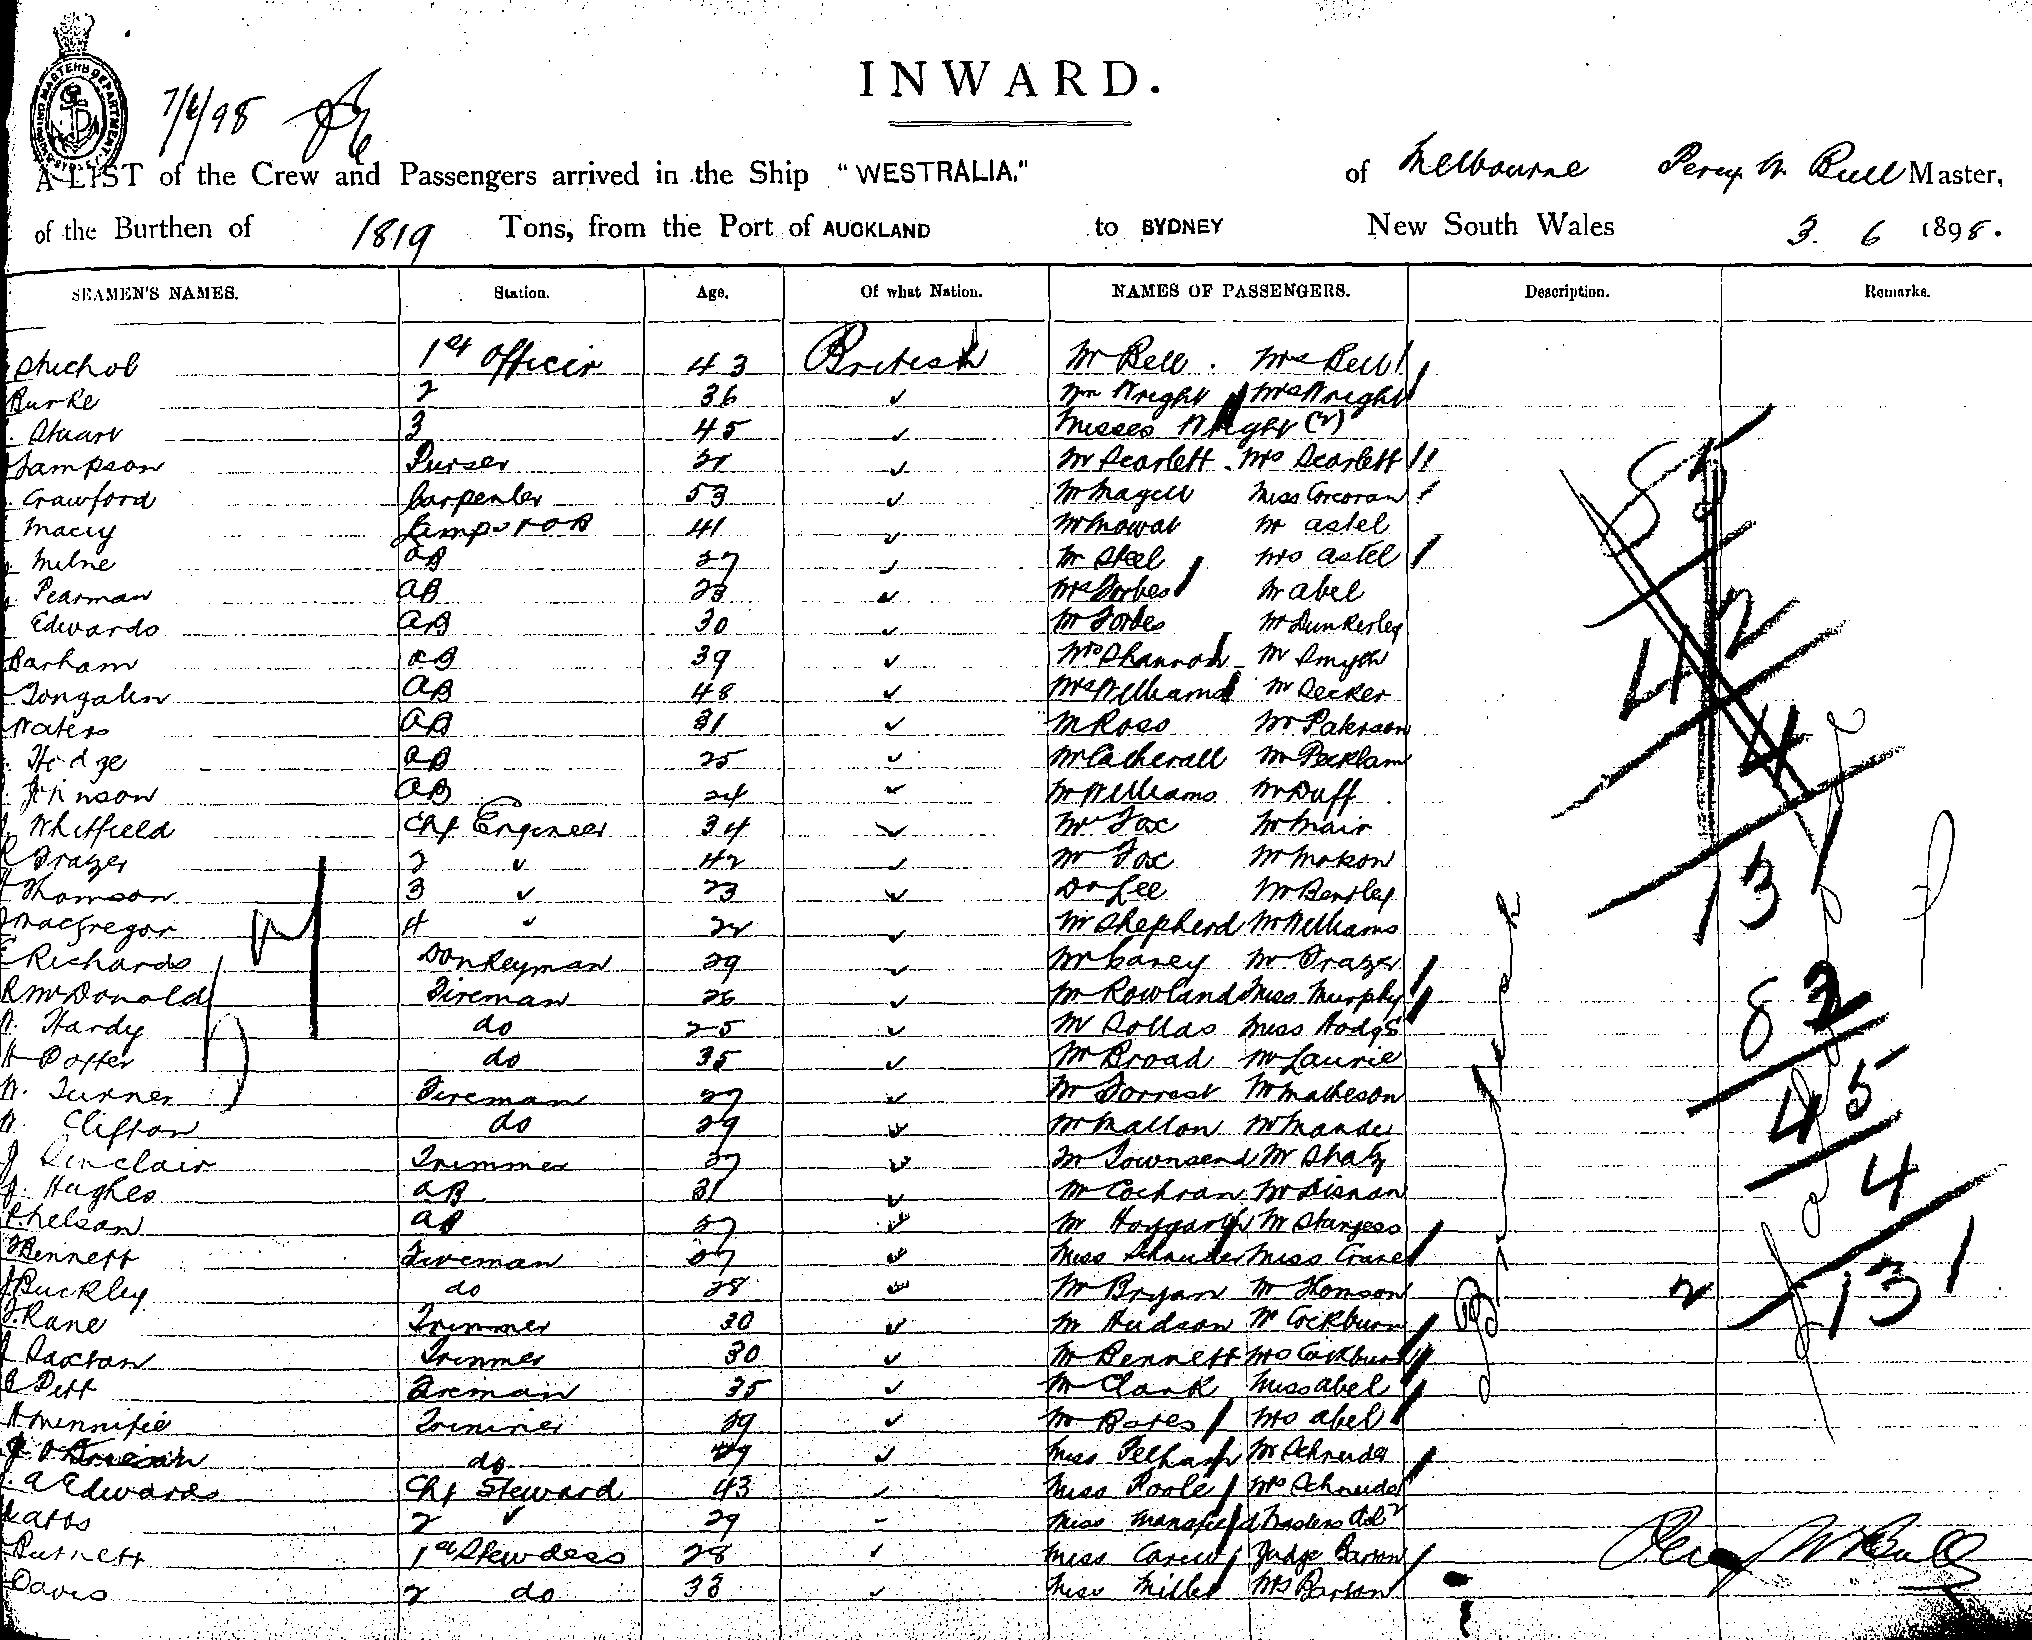 INWARD.
7/6/98
A LIST of the Crew and Passengers arrived in the Ship "WESTRALIA." of Melbourne Percy W Bull Master,
of the Burthen of 1819 Tons, from the Port of AUCKLAND to SYDNEY New South Wales 3. 6 1898.
SEAMEN'S NAMES. Station. Age. Of what Nation. NAMES OF PASSENGERS. Description. Remarks.
1st Officer 43 British Mr Bell. Mrs Bell
Burke 2 36 ✓ Mr Wright Mrs Wright
Stuart 3 45 ✓ Misses Wright (2)
Sampson Purser ✓ Mr Scarlett. Mrs Scarlett
Crawford Carpenter 53 ✓ Mr Magill Miss Corcoran
Macey Lamps 41 ✓ Mr Mowat Mr Astel
Milne AB 27 ✓ Mr Steel Mrs Astel
Pearman AB 23 ✓ Mrs Forbes Mr Abel
Edwards AB 30 ✓ Mr Forbes Mr Dunkerley
Barham AB 39 ✓ Mrs Shannon Mr Smyth
AB 48 ✓ Mrs Williams Mr Decker
Waters AB 31 ✓ Mr Ross Mr Paterson
Hodge AB 25 ✓ Mr Catherall Mr Pecklam
AB 24 ✓ Mr Williams Mr Duff
Whitfield Chf Engineer 34 ✓ Mr Fox Mr Mair
Frazer 2 ✓ 42 ✓ Mr Fox
Thomson 3 ✓ 23 ✓ Dr Lee Mr Bentley
MacGregor 4 ✓ 22 ✓ Mr Shepherd Mr Williams
E Richards Donkeyman 29 ✓ Mr Carey Mr Frazer
R McDonald Fireman 26 ✓ Mr Rowland Miss Murphy
W. Hardy do 25 ✓ Mr Dollas Miss Hodge
H Potter do 35 ✓ Mr Broad Mr Laurie
W. Turner Fireman 27 ✓ Mr Forrest Mr Matheson
W. Clifton do 29 ✓ Mr Mallon
J Sinclair Trimmer ✓ Mr Townsend
J. Hughes AB 31 ✓ Mr Cochran
Nelson AB ✓ Mr Hoggarth Mr Sturgess
Bennett Fireman ✓ Miss Schneider Miss Crane
J Buckley do 28 ✓ Mr Bryan Mr Thomson
Kane Trimmer 30 ✓ Mr Hudson Mr Cockburn
J Saxton Trimmer 30 ✓ Mr Bennett Mrs Cockburn
Pett Fireman 35 ✓ Mr Clark Miss Abel
H Minnifie Trimmer ✓ Mr Bates Mrs Abel
do 29 ✓ Miss Pelham Mr Schneider
A Edwards Chf Steward 43 ✓ Miss Poole Mrs Schneider
Watts 2 ✓ 29 Miss Mansfield Masters Do 2
Burnett 1st Stewdess 28 ✓ Miss Carew Judge Barton
Davis 2 do 33 ✓ Miss Miller Mrs Barton
42
4
131
82
45
4
131
2
Percy W Bull